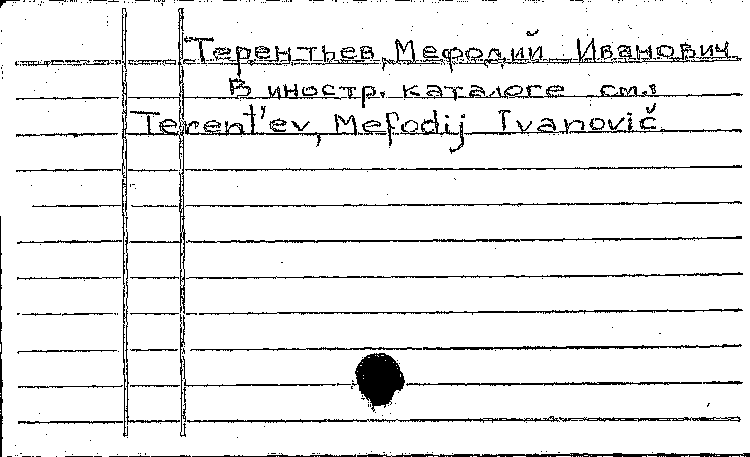 Терентьев, Мефодий Иванович
В иностр. каталоге см.:
Terent'ev, Mefodij Ivanovič